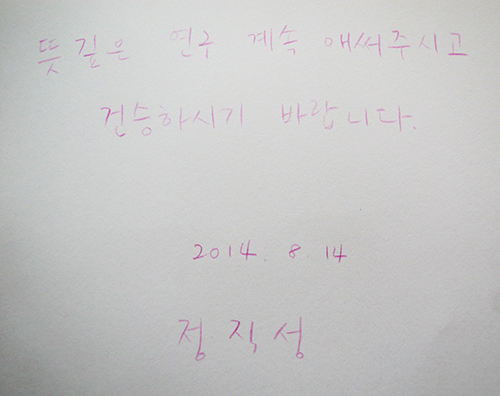 뜻깊은 연구 계속 애써주시고
건승하시기 바랍니다.
2014. 8 14
정직성